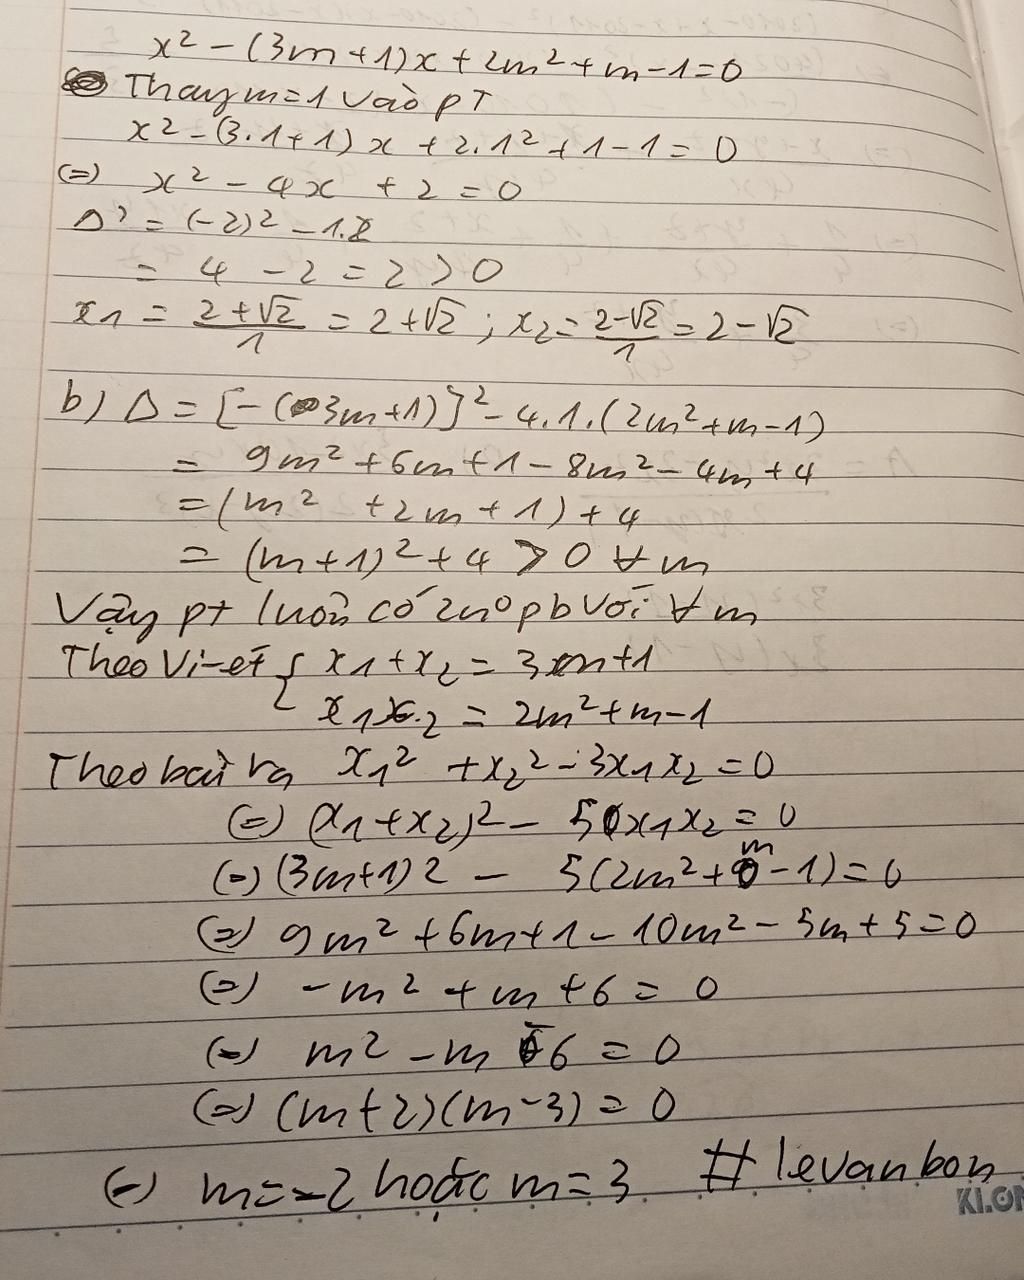 x² - (3m+1)x + 2m² + m - 1 = 0
Thay m=1 vào pT
x² - (3.1+1)x + 2.1² + 1 - 1 = 0
(=) x² - 4x + 2 = 0
Δ' = (-2)² - 1.2
= 4 - 2 = 2 > 0
x1 = (2+√2)/1 = 2+√2 ; x2 = (2-√2)/1 = 2-√2
b) Δ = [-(3m+1)]² - 4.1.(2m²+m-1)
= 9m² + 6m + 1 - 8m² - 4m + 4
= (m² + 2m + 1) + 4
= (m+1)² + 4 > 0 ∀m
Vậy pt luôn có 2no pb với ∀m
Theo Vi-ét { x1 + x2 = 3m+1
x1x2 = 2m² + m - 1
Theo bài ra x1² + x2² - 3x1x2 = 0
(=) (x1+x2)² - 5x1x2 = 0
(=) (3m+1)2 - 5(2m²+m-1) = 0
(=) 9m² + 6m + 1 - 10m² - 5m + 5 = 0
(=) -m² + m + 6 = 0
(=) m² - m - 6 = 0
(=) (m+2)(m-3) = 0
(=) m = -2 hoặc m = 3 # levanbon